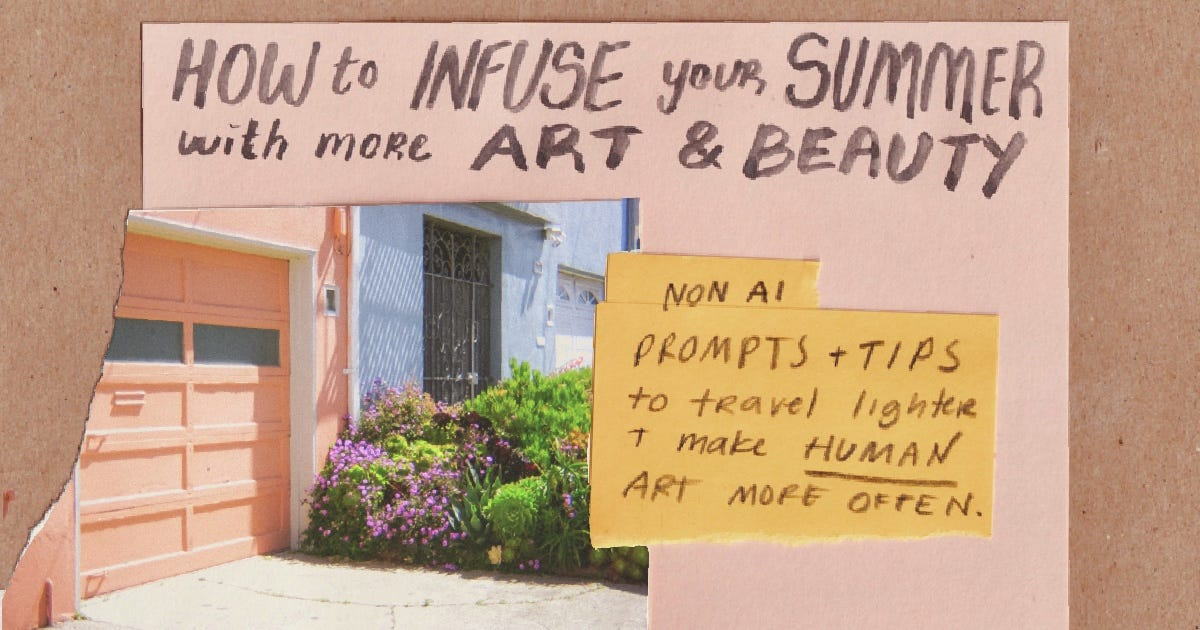 HOW to INFUSE your SUMMER
with more ART & BEAUTY
NON AI
PROMPTS + TIPS
to travel lighter
+ make HUMAN
ART MORE OFTEN.